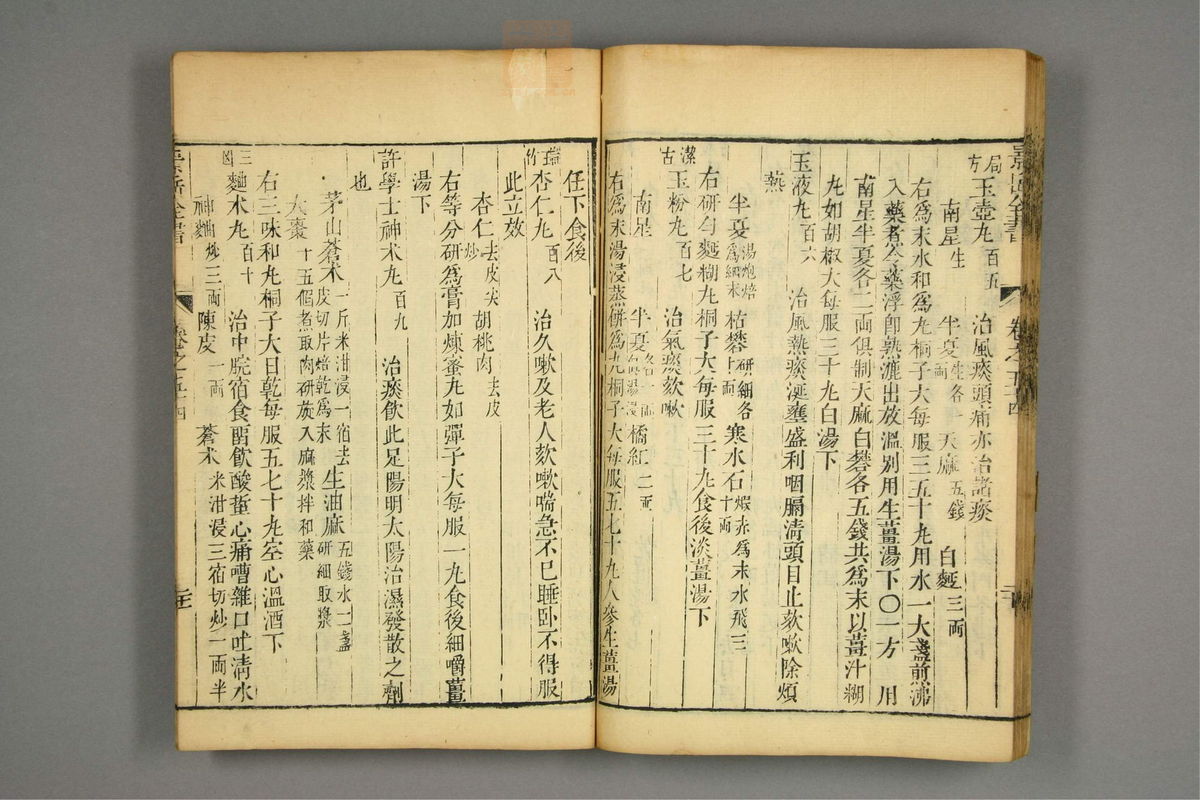 景岳全書 卷之五十四
局方 玉壺丸百五 治風痰頭痛亦治諸痰
南星生 半夏生各一兩 天麻五錢 白麪三兩
右爲末水和爲丸桐子大每服三五十丸用水一大盞煎沸
入藥煮令藥浮卽熟漉出放溫別用生薑湯下〇一方 用
南星半夏各二兩俱制天麻白礬各五錢共爲末以薑汁糊
丸如胡椒大每服三十丸白湯下
玉液丸百六 治風熱痰涎壅盛利咽膈淸頭目止欬嗽除煩
熱
半夏湯炮焙爲細末 枯礬研細各十兩 寒水石煆赤爲末水飛三十兩
右研勻麪糊丸桐子大每服三十丸食後淡薑湯下
潔古 玉粉丸百七 治氣痰欬嗽
南星 半夏各一兩俱湯浸 橘紅二兩
右爲末湯浸蒸餅爲丸桐子大每服五七十丸人參生薑湯
任下食後
瑞竹 杏仁丸百八 治久嗽及老人欬嗽喘急不已睡卧不得服
此立效
杏仁去皮尖炒 胡桃肉去皮
右等分研爲膏加煉蜜丸如彈子大每服一丸食後細嚼薑
湯下
許學士神朮丸百九 治痰飲此足陽明太陽治濕發散之劑
也
茅山蒼朮一斤米泔浸一宿去皮切片焙乾爲末 生油麻五錢水二盞研細取漿
大棗十五個煮取肉研旋入麻漿拌和藥
右三味和丸桐子大日乾每服五七十丸空心溫酒下
三因 麯朮丸百十 治中脘宿食畱飲酸蜇心痛嘈雜口吐淸水
神麯炒三兩 陳皮一兩 蒼朮米泔浸三宿切炒一兩半
景岳全書 卷之五十四